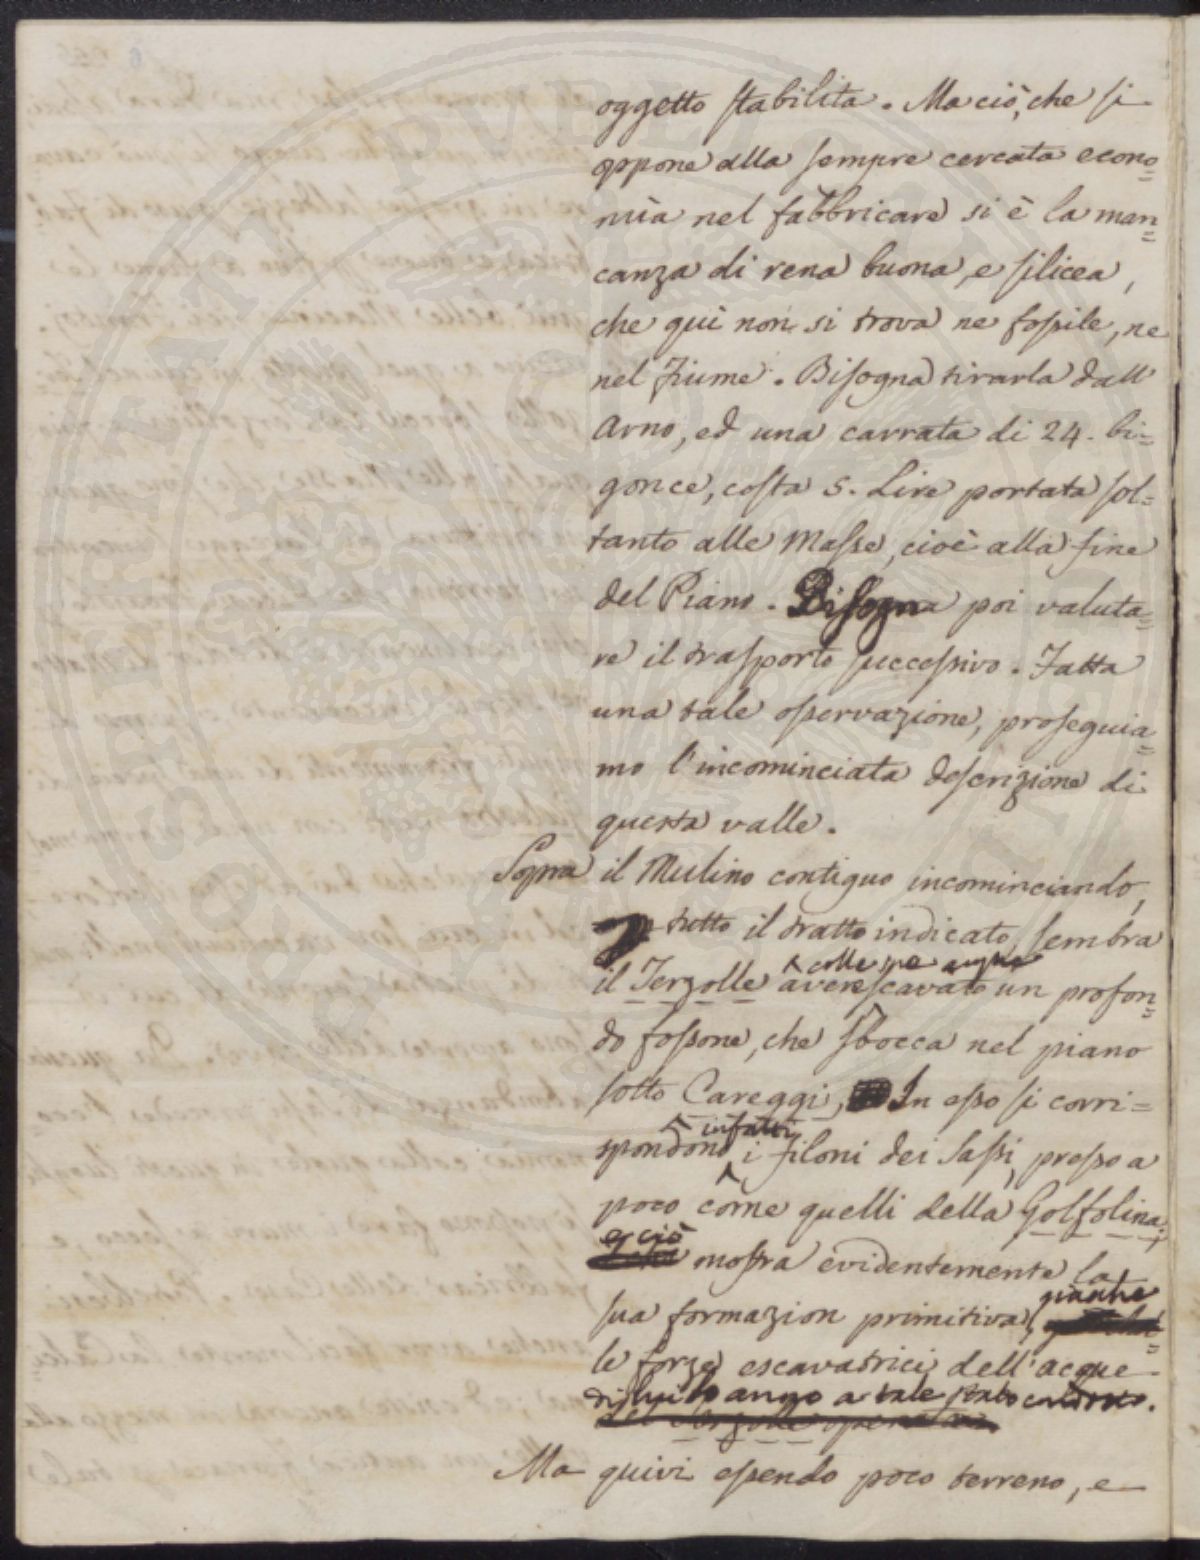 oggetto stabilita. Ma ciò, che si
oppone alla sempre cercata econo=
mìa nel fabbricare si è la man=
canza di rena buona, e silicea,
che quì non si trova ne fossile, ne
nel Fiume. Bisogna tirarla dall'
Arno, ed una carrata di 24. bi=
gonce, costa 5. Lire portata sol=
tanto alle Masse, cioè alla fine
del Piano. Bisogna poi valuta=
re il trasporto successivo. Fatta
una tale osservazione, proseguia=
mo l'incominciata descrizione di
questa valle.
Sopra il Mulino contiguo incominciando,
tutto il tratto indicato, sembra
colle sue acque
il Terzolle avere scavato un profon=
do fossone, che sbocca nel piano
sotto Careggi, In esso si corri=
infatti
spondono i filoni dei Sassi, presso a
poco come quelli della Golfolina;
e ciò
mostra evidentemente la
sua formazion primitiva,
le forze escavatrici dell'acque
a tale stato
Ma quivi essendo poco terreno, e